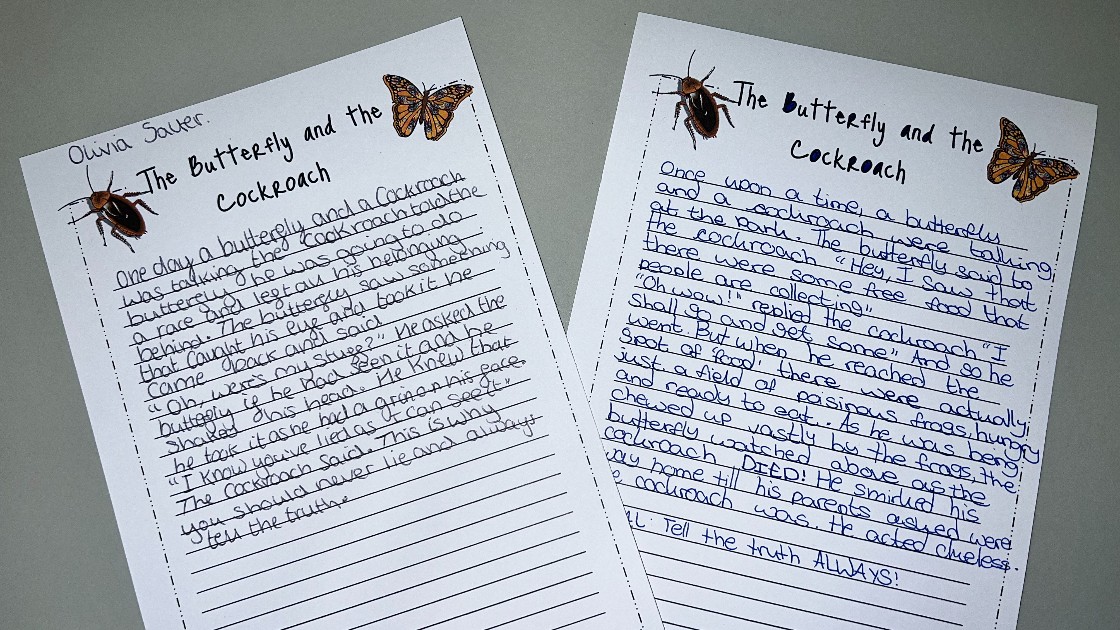 Olivia Sauer.
The Butterfly and the
Cockroach
one day a butterfely and a Cockroach
was talking the Cookroach told the
butterely if he was going to do
a race and legt au his belonging
behind. The butterely saw something
that caught his eye and took it he
came back and said
"Oh, were's my stuff?" He asked the
butterfly if he Had seen it and he
shaked his head. He Knew that
he took it as he had a grin on his face.
"I know you've lied as I can see it"
The Cockroach said. This is why
you should never lie and always
tell the truth.
The Butterfly and the
Cockroach
Once upon a time, a butterfly
and a cockroach were talking
at the park. The butterfly said to
the cockroach "Hey, I saw that
there were some free food that
people are collecting"
"Oh wow!" replied the cockroach "I
shall go and get some" And so he
went. But when he reached the
spot of food there were actually
just a field of poisirous frogs, hungry
and ready to eat. As he was being
chewed up vastly by the frogs, the
butterfly watched above as the
cockroach DIED! He smirked his
way home till his parents asked were
cockroach was. He acted clueless.
Tell the truth ALWAYS!